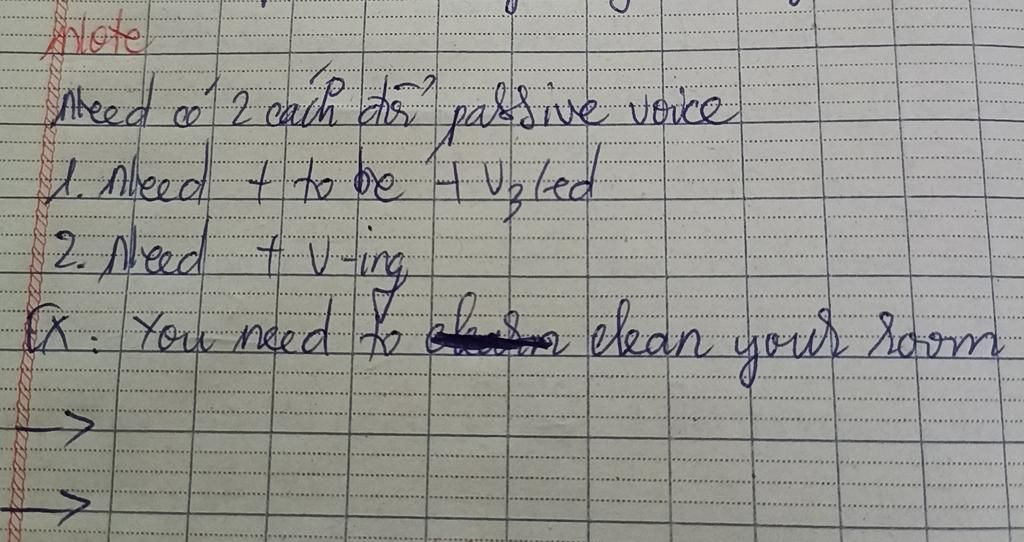 Note
Need có 2 cách để passive voice
1. Need + to be + V3/ed
2. Need + V-ing
Ex: You need to clean your room
→
→